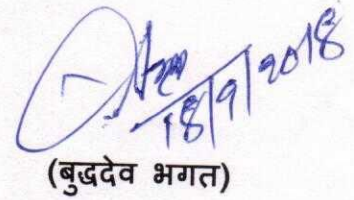 18/9/2018
(बुद्धदेव भगत)